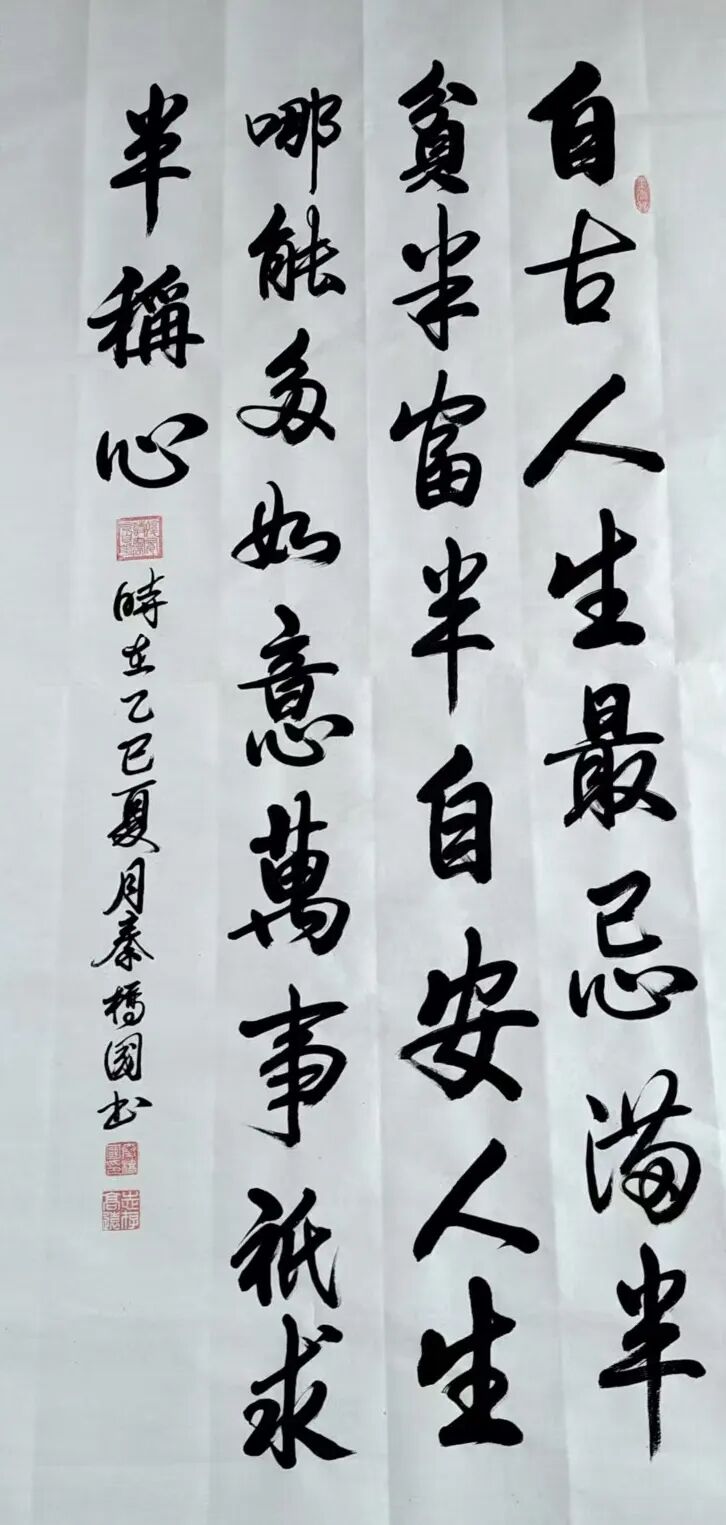 自古人生最忌滿半
貧半富半自安人生
哪能多如意萬事祇求
半稱心
時在乙巳夏月秦橋國书
志存高遠